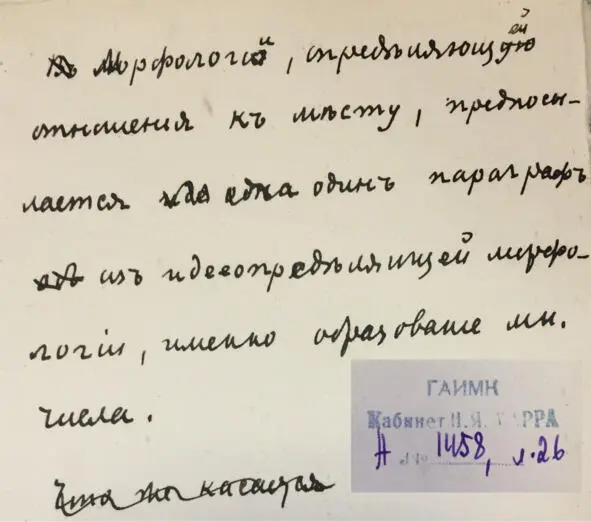 Морфологіи, опредѣляющей
отношенія къ мѣсту, предпосы-
лается одинъ параграфъ
изъ идееопредѣляющей морфо-
логіи, именно образованіе мн.
числа.
Что же касается
ГАИМК
Кабинет Н.Я. МАРРА
А № 1458, л. 26